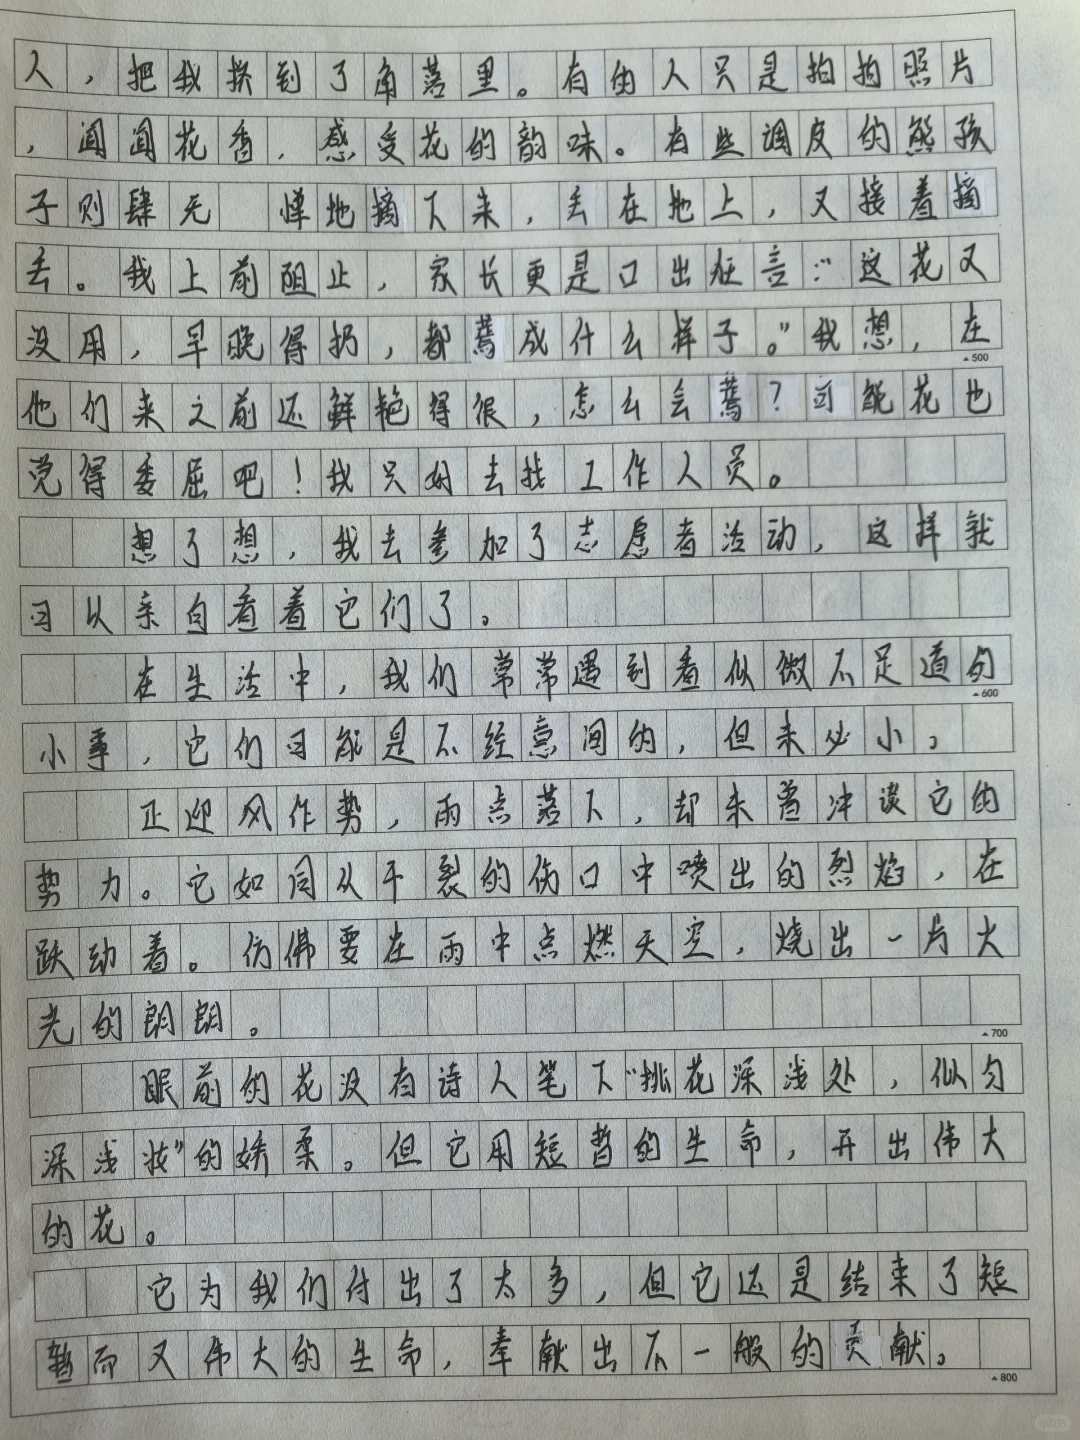 人，把我挤到了角落里。有的人只是拍拍照片
，闻闻花香，感受花的韵味。有些调皮的熊孩
子则肆无 惮地摘下来，丢在地上，又接着摘
丢。我上前阻止，家长更是口出狂言：“这花又
没用，早晚得扔，都蔫成什么样子。”我想，在
▲500
他们来之前还鲜艳得很，怎么会蔫？可能花也
觉得委屈吧！我只好去找工作人员。
想了想，我去参加了志愿者活动，这样就
可以亲自看着它们了。
在生活中，我们常常遇到看似微不足道的
▲600
小事，它们可能是不经意间的，但未必小。
正迎风作势，雨点落下，却未曾冲淡它的
势力。它如同从干裂的伤口中喷出的烈焰，在
跃动着。仿佛要在雨中点燃天空，烧出一片火
光的朗朗。
▲700
眼前的花没有诗人笔下“桃花深浅处，似匀
深浅妆”的娇柔。但它用短暂的生命，开出伟大
的花。
它为我们付出了太多，但它还是结束了短
暂而又伟大的生命，奉献出不一般的贡献。
▲800